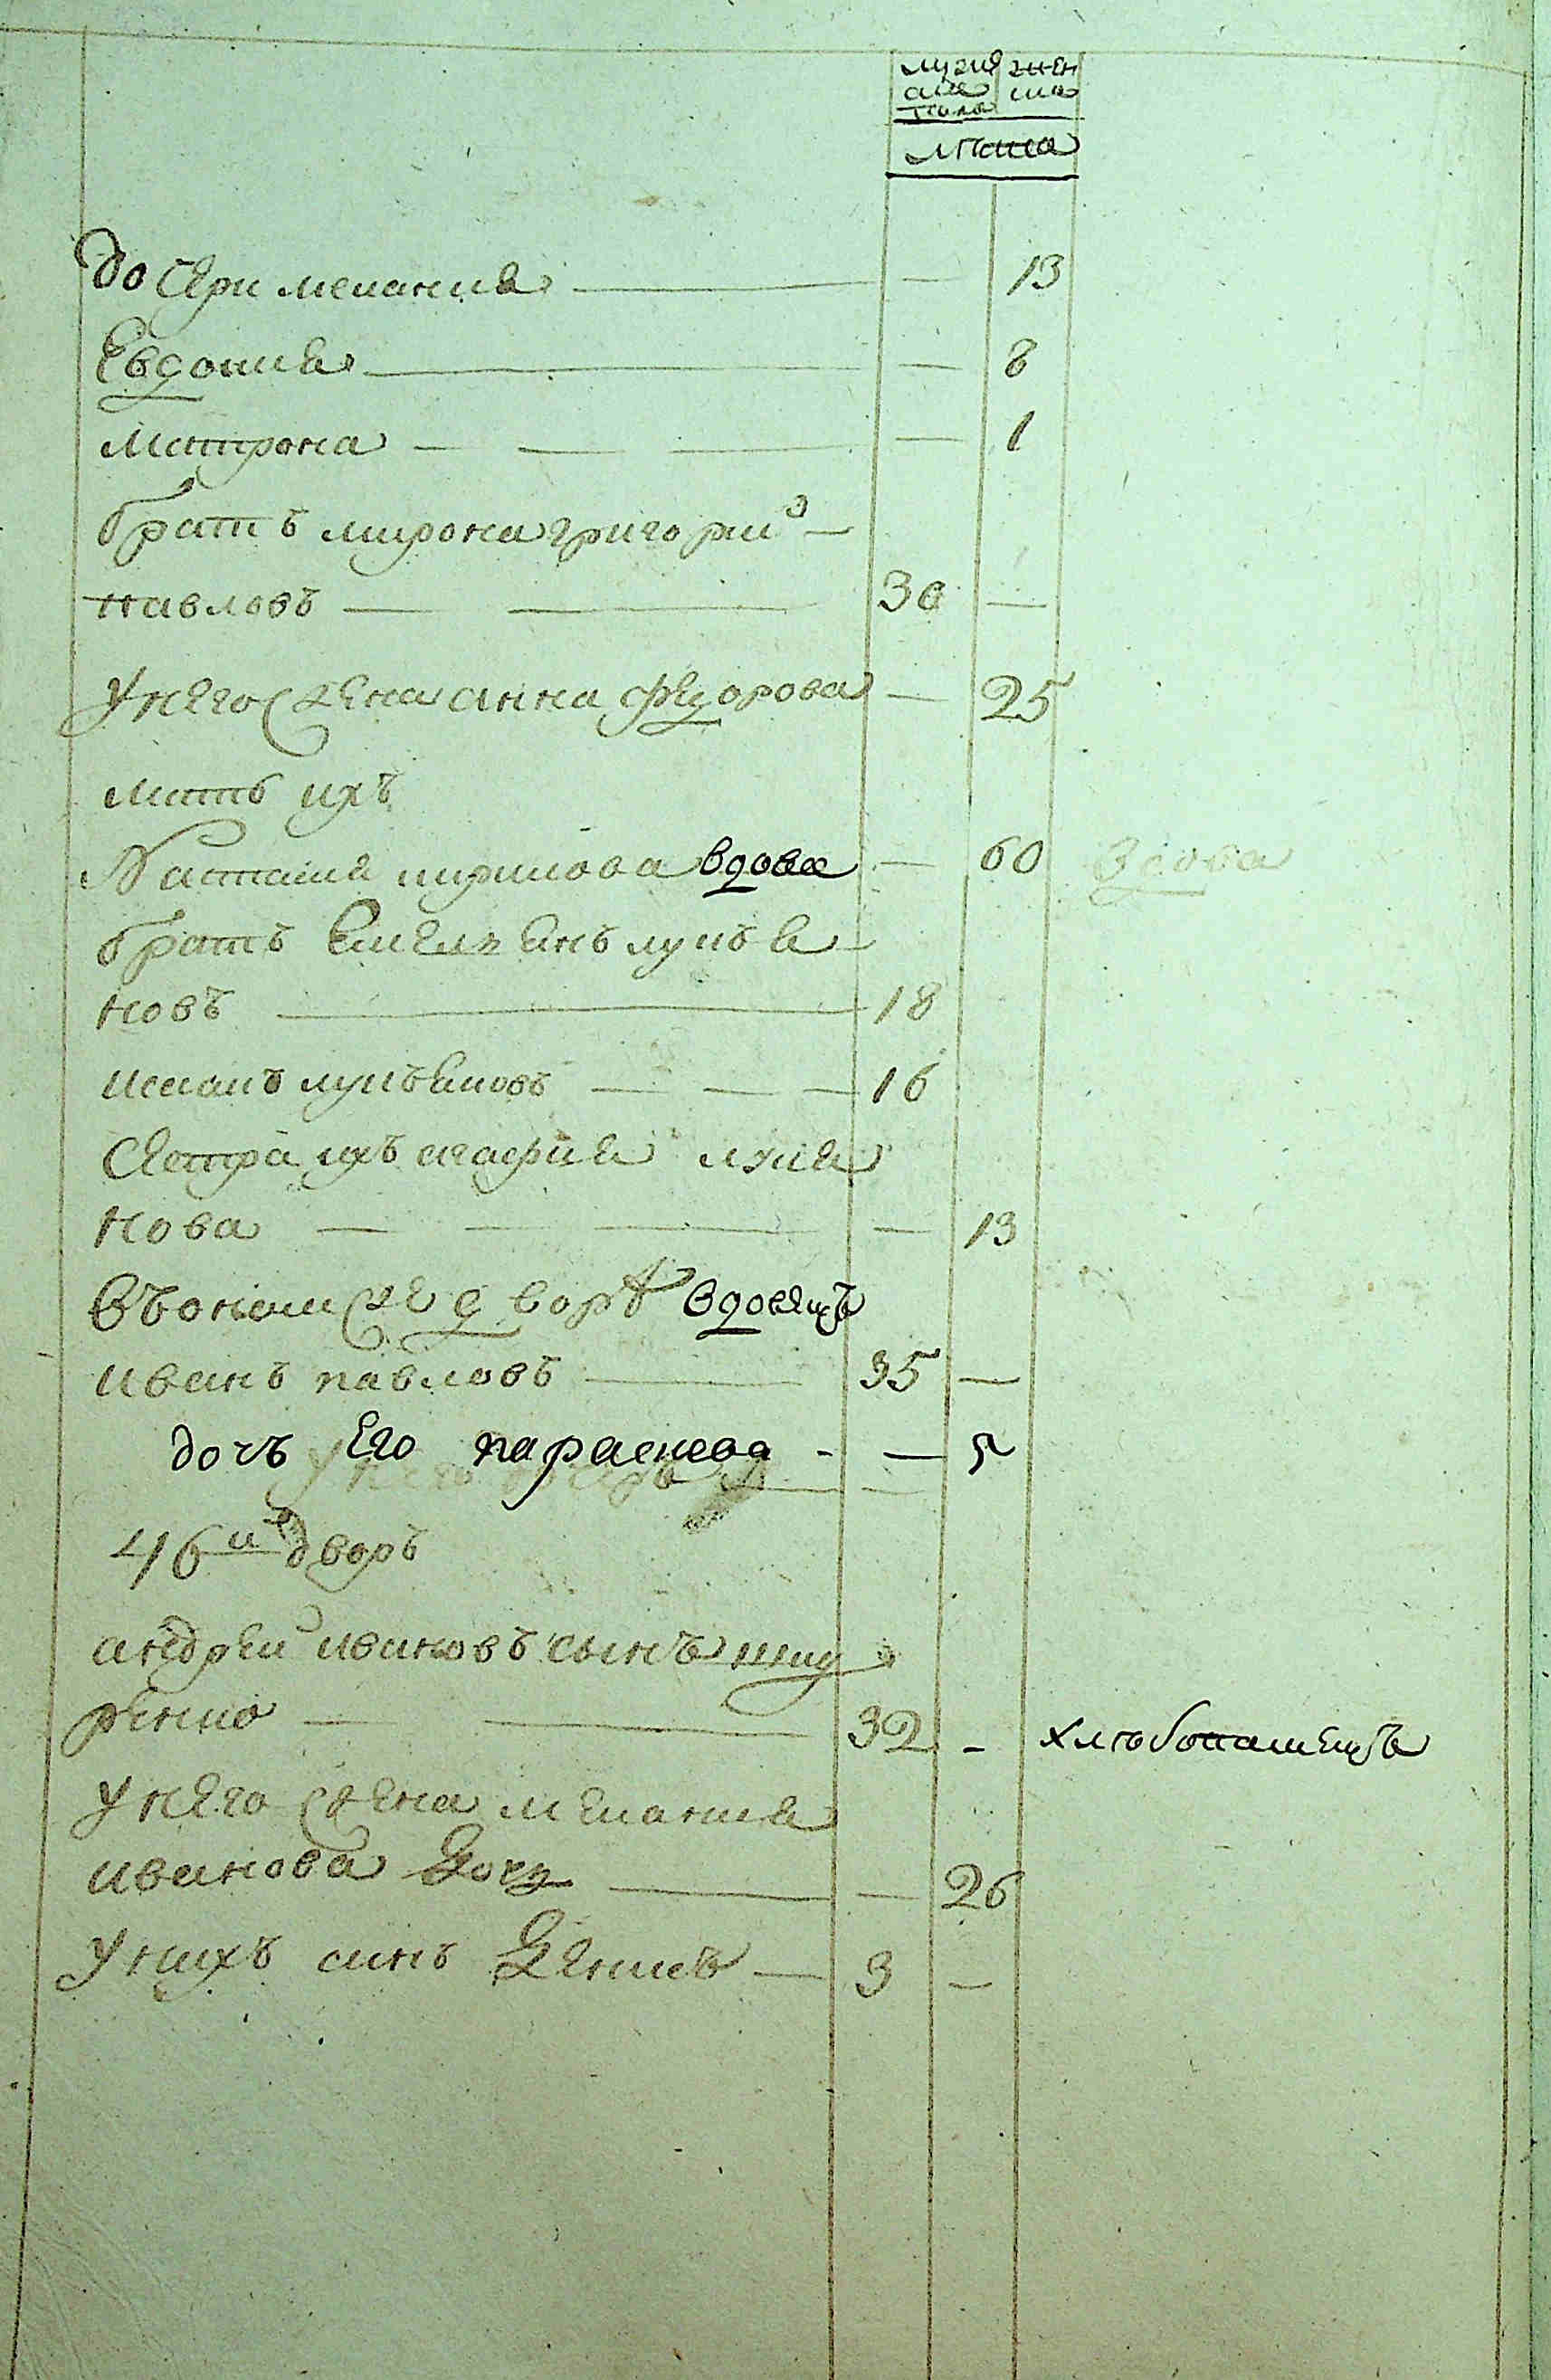 мужеска пола женска
лѣта
дочери мелания — — 13
Евдокия — — 8
Матрона — — 1
братъ мирона григорий —
павловъ — 30 —
у него жена анна федорова — 25
мать ихъ
Настасия кирилова вдова — 60 вдова
братъ Емельянъ лукья
новъ — 18
иванъ лукьяновъ — 16
сестра ихъ агафия лукья
нова — — 13
въ оном же дворѣ вдовецъ
иванъ павловъ — 35 —
дочь Его параскева - — 5
46й дворъ
андрей ивановъ сынъ шид
ренко — 32 - хлѣбопашецъ
у него жена мелания
иванова дочь — — 26
у нихъ синъ денисъ — 3 —